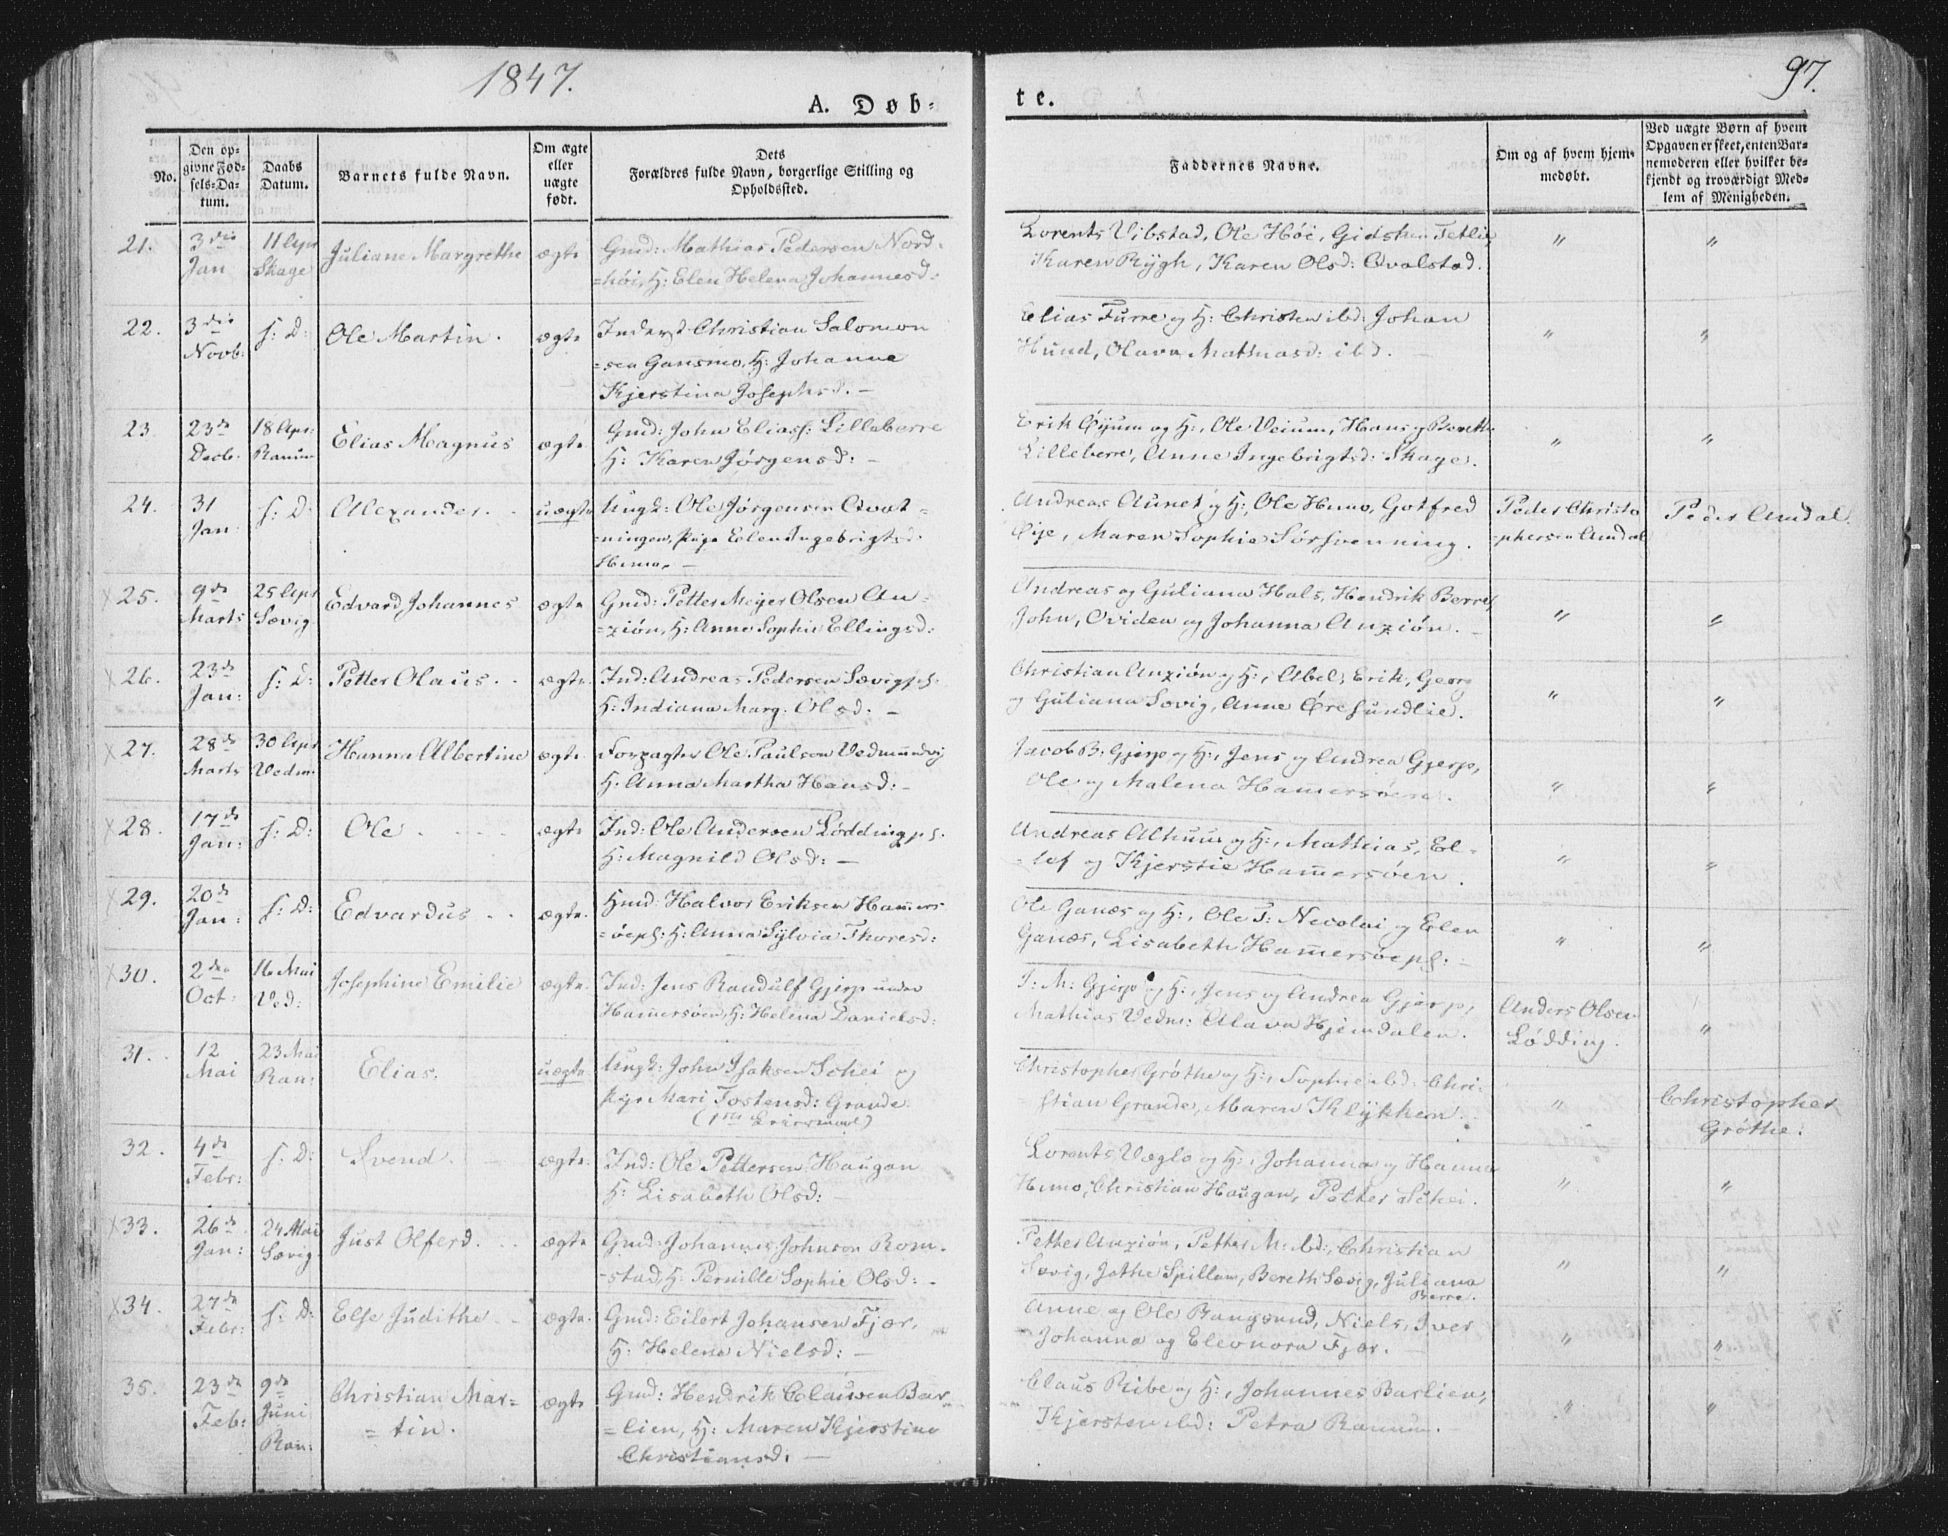 1847.
97.
A. Døb-
te.
No.
Den op-
givne Fød-
sels-Da-
tum.
Daabs
Datum.
Barnets fulde Navn.
Om ægte
eller
uægte
født.
Dets
Forældres fulde Navn, borgerlige Stilling og
Opholdssted.
Faddernes Navne.
Om og af hvem hjem-
medøbt.
Ved uægte Børn af hvem
Opgaven er skeet, enten Bar-
nemoderen eller hvilket be-
kjendt og troværdigt Med-
lem af Menigheden.
21.
3die
Jan
11 Apr
Skage
Juliane Margrethe
ægte
Gmd: Mathias Pedersen Nord-
=höi, H: Elen Helena Johannesd:
Lorents Vibstad, Ole Höi, Fetlie
Karen Rygh, Karen Olsd: Qvalstad.
"
"
22.
3die
Novb:
s: D:
Ole Martin.
ægte
Inderst Christian Salomon
=sen Gansmo, H: Johanne
Kjerstina Josephsd. –
Elias Furre og H: ibd: Johan
Hund, Olava Mathiasd: ibd.
"
"
23.
23de
Decb.
18 Apr:
Ranum
Elias Magnus
ægte
Gmd: John Eliass: Lilleberre
H: Karen Jørgensd: –
Erik Øyum og H:, Ole Veium, Hans og Bereth
Lilleberre, Anne Ingebrigtsd: Skage.
"
"
24.
31
Jan
s: D:
Alexander.
uægte
Ungk: Ole Jörgensen Qvat-
=ningen, Pige Elen Ingebrigtsd:
Hemo. –
Andreas Aunet og H:, Ole Hemo, Gotfred
Øie, Maren Sophie Sörsvenning.
Peder Christo
=phersen Amdal
Peder Amdal.
25.
9de
Marts
25 Apr
Sævig
Edvard Johannes
ægte
Gmd: Petter Meyer Olsen An-
=ziön, H: Anne Sophie Ellingsd:
Andreas og Guliana Hals, Hendrik Berre,
John, Ovidea og Johanna Anziön. –
"
"
26.
23de
Jan:
s: D:
Petter Olaus.
ægte
Ind: Andreas Pedersen Sævigps.
H: Indiana Marg. Olsd. –
Christian Anziön og H:, Abel, Erik, Georg
og Guliana Sævig, Anne Øresundlie.
"
"
27.
28de
Marts
30 Apr
Vedm.
Hanna Albertine
ægte
Forpagter Ole Paulsen Vedmundvig
H: Anna Martha Hansd: –
Jacob B: Gjerp og H:, Jens og Andrea Gjerp,
Ole og Malena Hamersöen.
"
"
28.
17de
Jan:
s: D:
Ole
ægte
Ind: Ole Andersen Løddingps.
H: Magnild Olsd: –
Andreas og H:, Mathias, El-
=lef og Kjerstie Hamersöen.
"
"
29.
20de
Jan:
s: D:
Edvardus
ægte.
Hmd: Halvor Eriksen Hamers
=öeps: H: Anna Sylvia Thoresd:
Ole Ganæs og H:, Ole P: Necolai og Elen
Ganæs, Lisabeth Hamersöeps:
"
"
30.
2den
Oct:
16 Mai
Ved:
Josephine Emilie
ægte.
Ind: Jens Randulf Gjerp under
Hamersöen, H: Helena Danielsd:
J: M: Gjerp og H:, Jens og Andrea Gjerp,
Mathias Vedm: Alava Hjemdalen.
Anders Olsen
Lødding.
"
31.
12
Mai
23 Mai
Ran:
Elias.
uægte.
Ungk: John Isaksen Schei og
Pige Mari Tostensd: Grande
Christopher Gröthe og H:, Sophie ibd: Chri-
stian Grande, Maren Klykken.
"
Christopher
Gröthe.
32.
4de
Febr:
s: D:
Svend.
ægte.
Ind: Ole Pettersen Haugan
H: Lisabeth Olsd: –
Lorents Væglo og H:, Johanna og Hanna
Hemo, Christian Haugan, Petter Schei.
"
"
33.
26de
Jan:
24 Mai
Sævig
Just Olferd.
ægte
Gmd: Johannes Johnson Rom-
-stad, H: Pernille Sophie Olsd: –
Petter Anziön, Petter M: ibd:, Christian
Sævig, Jethe Spillum, Bereth Sævig, Juliana
Berre.
"
"
34.
27de
Febr:
s: D:
Else Judithe
ægte.
Gmd: Eilert Johansen Fjær,
H: Helena Nielsd: –
Anne og Ole Bangsund, Niels, Iver
Johanna og Eleonora Fjær. –
"
"
35.
23de
Feb:
9de
Juni
Ran:
Christian Mar-
= tin.
ægte
Gmd: Hendrik Clausen Bar-
=lien, H: Maren Kjerstine
Christiansd: –
Claus Ribe og H:, Johannes Barlien,
Kjersten ibd: Petra Ranum. –
"
"